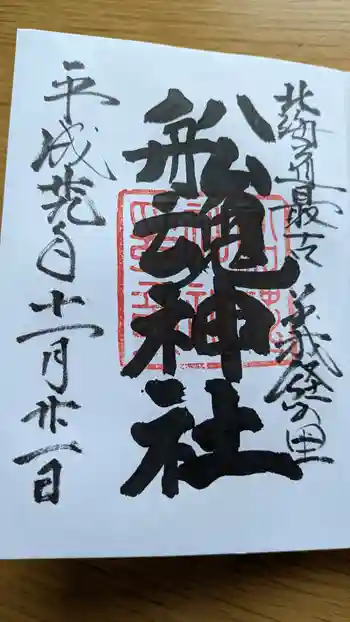 北海道最古 義経の里
船魂神社
平成廿九年十一月廿一日